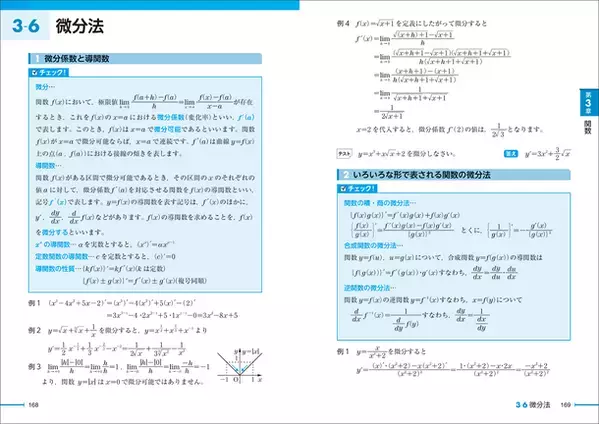 3-6 微分法
1 微分係数と導関数
チェック!
微分…
関数 f(x)において、極限値 lim f(a+h)-f(a)/h = lim f(x)-f(a)/x-a が存在
するとき、これを f(x)の x=a における微分係数(変化率)といい、f´(a)
で表します。このとき、f(x)は x=a で微分可能であるといいます。関数
f(x)が x=a で微分可能ならば、x=a で連続です。f´(a)は曲線 y=f(x)
上の点(a , f(a))における接線の傾きを表します。
導関数…
関数 f(x)がある区間で微分可能であるとき、その区間の x のそれぞれの
値 a に対して、微分係数 f´(a)を対応させる関数を f(x)の導関数といい、
記号 f´(x)で表します。y=f(x)の導関数を表す記号は、f´(x)のほかに、
y´, dy/dx, d/dx f(x)などがあります。f(x)の導関数を求めることを、f(x)
を微分するといいます。
xᵅの導関数… α を実数とすると、(xᵅ)´=αxᵅ⁻¹
定数関数の導関数… c を定数とすると、(c)´=0
導関数の性質… {kf(x)}´=kf´(x)(k は定数)
{f(x)±g(x)}´=f´(x)±g´(x)(複号同順)
例 1 (x³-4x²+5x-2)´=(x³)´-4(x²)´+5(x)´-(2)´
=3x³⁻¹-4・2x²⁻¹+5・1x¹⁻¹-0=3x²-8x+5
例 2 y=√x+³√x+1/x を微分すると、y=x^(1/2)+x^(1/3)+x⁻¹ より
例 3 lim |h|-|0|/h = lim h/h =1 , lim |h|-|0|/h = lim -h/h =-1
より、関数 y=|x|は x=0 で微分可能ではありません。
y y=|x|
-1 O 1 x
168
例 4 f(x)=√x+1 を定義にしたがって微分すると
f´(x)=lim √(x+h)+1-√x+1/h
=lim (√(x+h)+1-√x+1)(√x+h+1+√x+1)/h(√x+h+1+√x+1)
=lim (x+h+1)-(x+1)/h(√x+h+1+√x+1)
=lim 1/√x+h+1+√x+1
=1/2√x+1
x=2 を代入すると、微分係数 f´(2)の値は、1/2√3 となります。
テスト y=x³+x√x+2 を微分しなさい。 答え y´=3x²+3/2√x
第3章
関数
2 いろいろな形で表される関数の微分法
チェック!
関数の積・商の微分法…
{f(x)g(x)}´=f´(x)g(x)+f(x)g´(x)
{f(x)/g(x)}´=f´(x)g(x)-f(x)g´(x)/{g(x)}² とくに、{1/g(x)}´=-g´(x)/{g(x)}²
合成関数の微分法…
関数 y=f(u), u=g(x)について、合成関数 y=f(g(x))の導関数は
{f(g(x))}´=f´(g(x))・g´(x)すなわち、dy/dx=dy/du・du/dx
逆関数の微分法…
関数 y=f(x)の逆関数 y=f⁻¹(x)すなわち、x=f(y)について
d/dx f⁻¹(x)=1/d/dy f(y) すなわち、dy/dx=1/dx/dy
例 1 y=x/x²+2 を微分すると
y´=(x)´・(x²+2)-x(x²+2)´/(x²+2)²=1・(x²+2)-x・2x/(x²+2)²=-x²+2/(x²+2)²
3-6 微分法 169